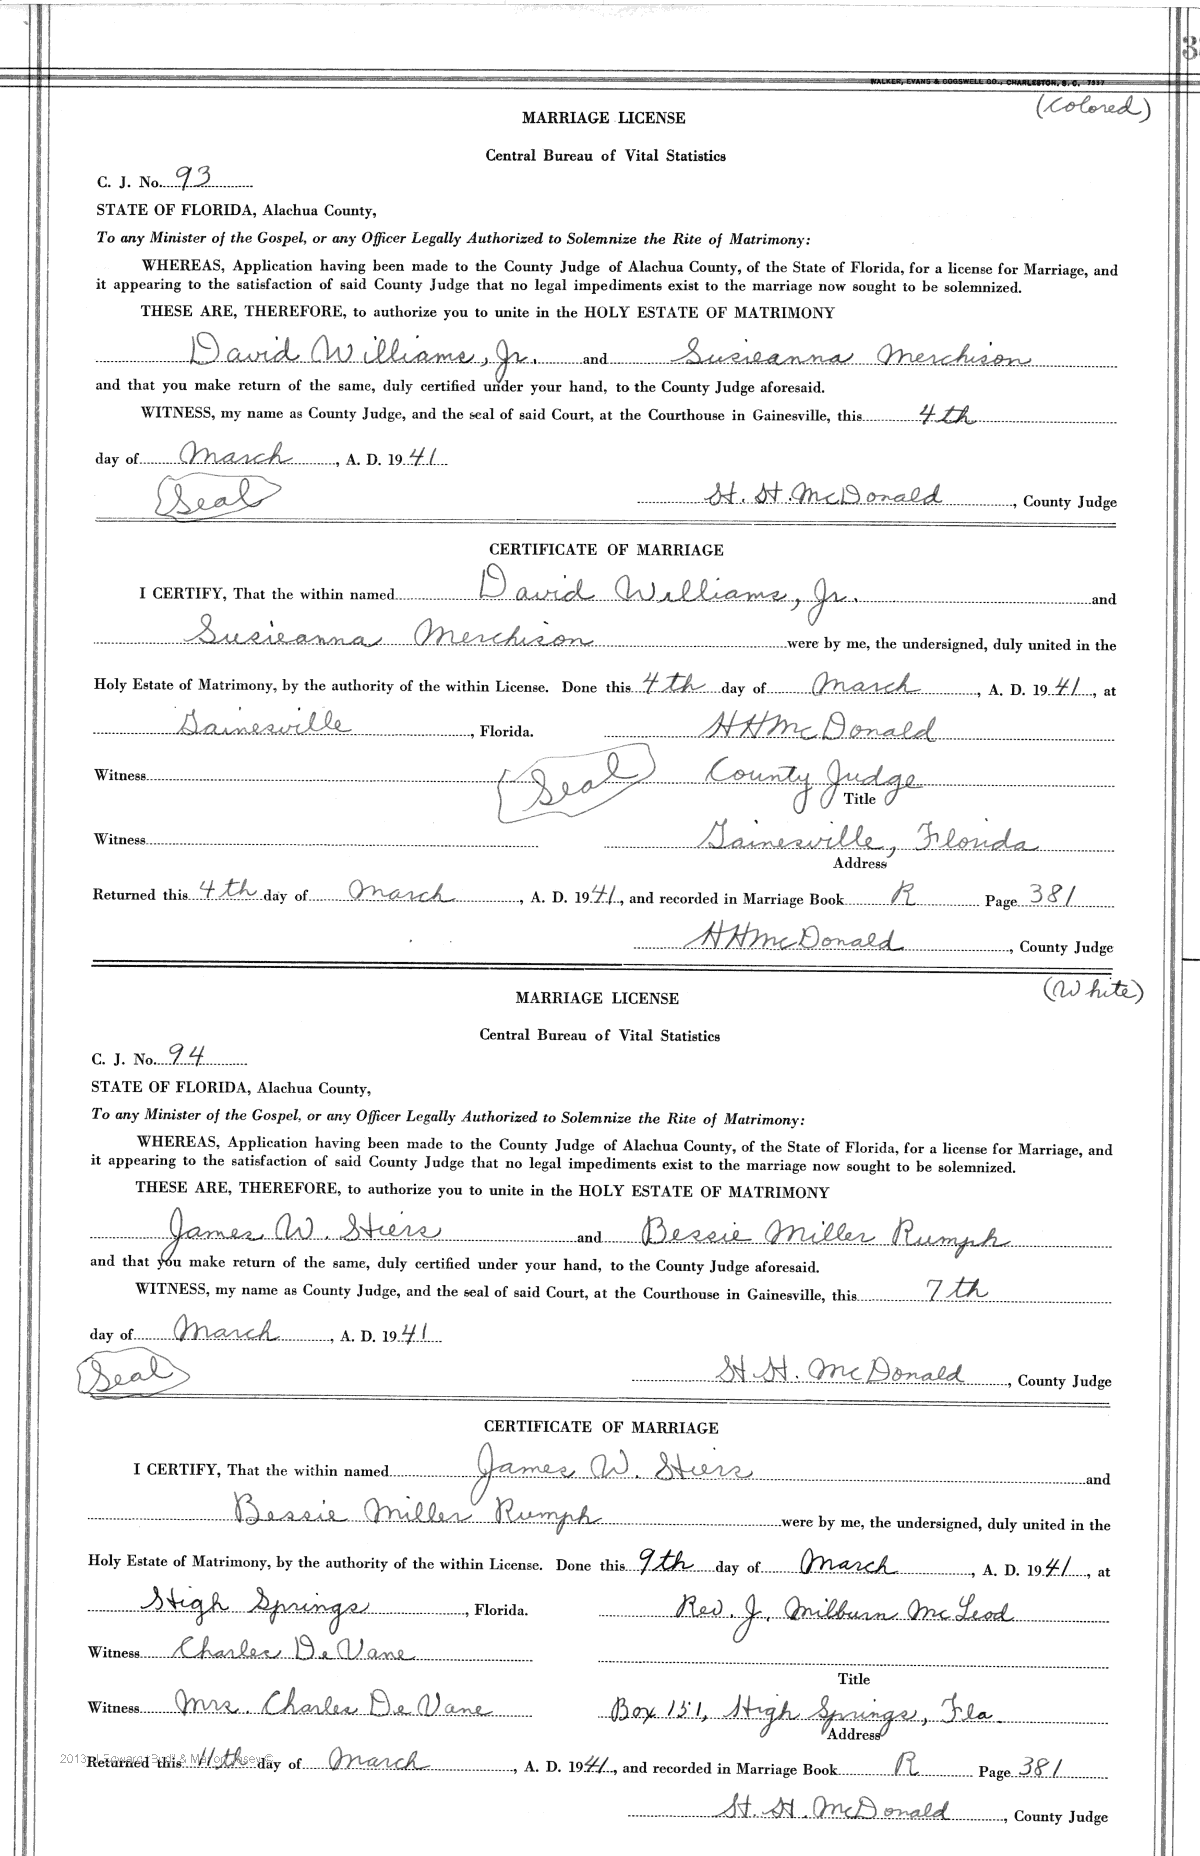 3
WALKER, EVANS & COGSWELL CO., CHARLESTON, S. C. 7557
(Colored)
MARRIAGE LICENSE
Central Bureau of Vital Statistics
C. J. No. 93
STATE OF FLORIDA, Alachua County,
To any Minister of the Gospel, or any Officer Legally Authorized to Solemnize the Rite of Matrimony:
WHEREAS, Application having been made to the County Judge of Alachua County, of the State of Florida, for a license for Marriage, and
it appearing to the satisfaction of said County Judge that no legal impediments exist to the marriage now sought to be solemnized.
THESE ARE, THEREFORE, to authorize you to unite in the HOLY ESTATE OF MATRIMONY
David Williams, Jr. and Susieanna Merchison
and that you make return of the same, duly certified under your hand, to the County Judge aforesaid.
WITNESS, my name as County Judge, and the seal of said Court, at the Courthouse in Gainesville, this 4th
day of March, A. D. 1941
(Seal) H. H. McDonald, County Judge
CERTIFICATE OF MARRIAGE
I CERTIFY, That the within named David Williams, Jr. and
Susieanna Merchison were by me, the undersigned, duly united in the
Holy Estate of Matrimony, by the authority of the within License. Done this 4th day of March, A. D. 1941, at
Gainesville, Florida. HHMcDonald
Witness (Seal) County Judge
Title
Witness Gainesville, Florida
Address
Returned this 4th day of March, A. D. 1941, and recorded in Marriage Book R Page 381
HHMcDonald, County Judge
(White)
MARRIAGE LICENSE
Central Bureau of Vital Statistics
C. J. No. 94
STATE OF FLORIDA, Alachua County,
To any Minister of the Gospel, or any Officer Legally Authorized to Solemnize the Rite of Matrimony:
WHEREAS, Application having been made to the County Judge of Alachua County, of the State of Florida, for a license for Marriage, and
it appearing to the satisfaction of said County Judge that no legal impediments exist to the marriage now sought to be solemnized.
THESE ARE, THEREFORE, to authorize you to unite in the HOLY ESTATE OF MATRIMONY
James W. Stiers and Bessie Miller Rumph
and that you make return of the same, duly certified under your hand, to the County Judge aforesaid.
WITNESS, my name as County Judge, and the seal of said Court, at the Courthouse in Gainesville, this 7th
day of March, A. D. 1941
(Seal) H. H. McDonald, County Judge
CERTIFICATE OF MARRIAGE
I CERTIFY, That the within named James W. Stiers and
Bessie Miller Rumph were by me, the undersigned, duly united in the
Holy Estate of Matrimony, by the authority of the within License. Done this 9th day of March, A. D. 1941, at
High Springs, Florida. Rev. J. Milburn McLeod
Witness Charles De Vane
Title
Witness Mrs. Charles De Vane Box 151, High Springs, Fla.
Address
Returned this 11th day of March, A. D. 1941, and recorded in Marriage Book R Page 381
H. H. McDonald, County Judge